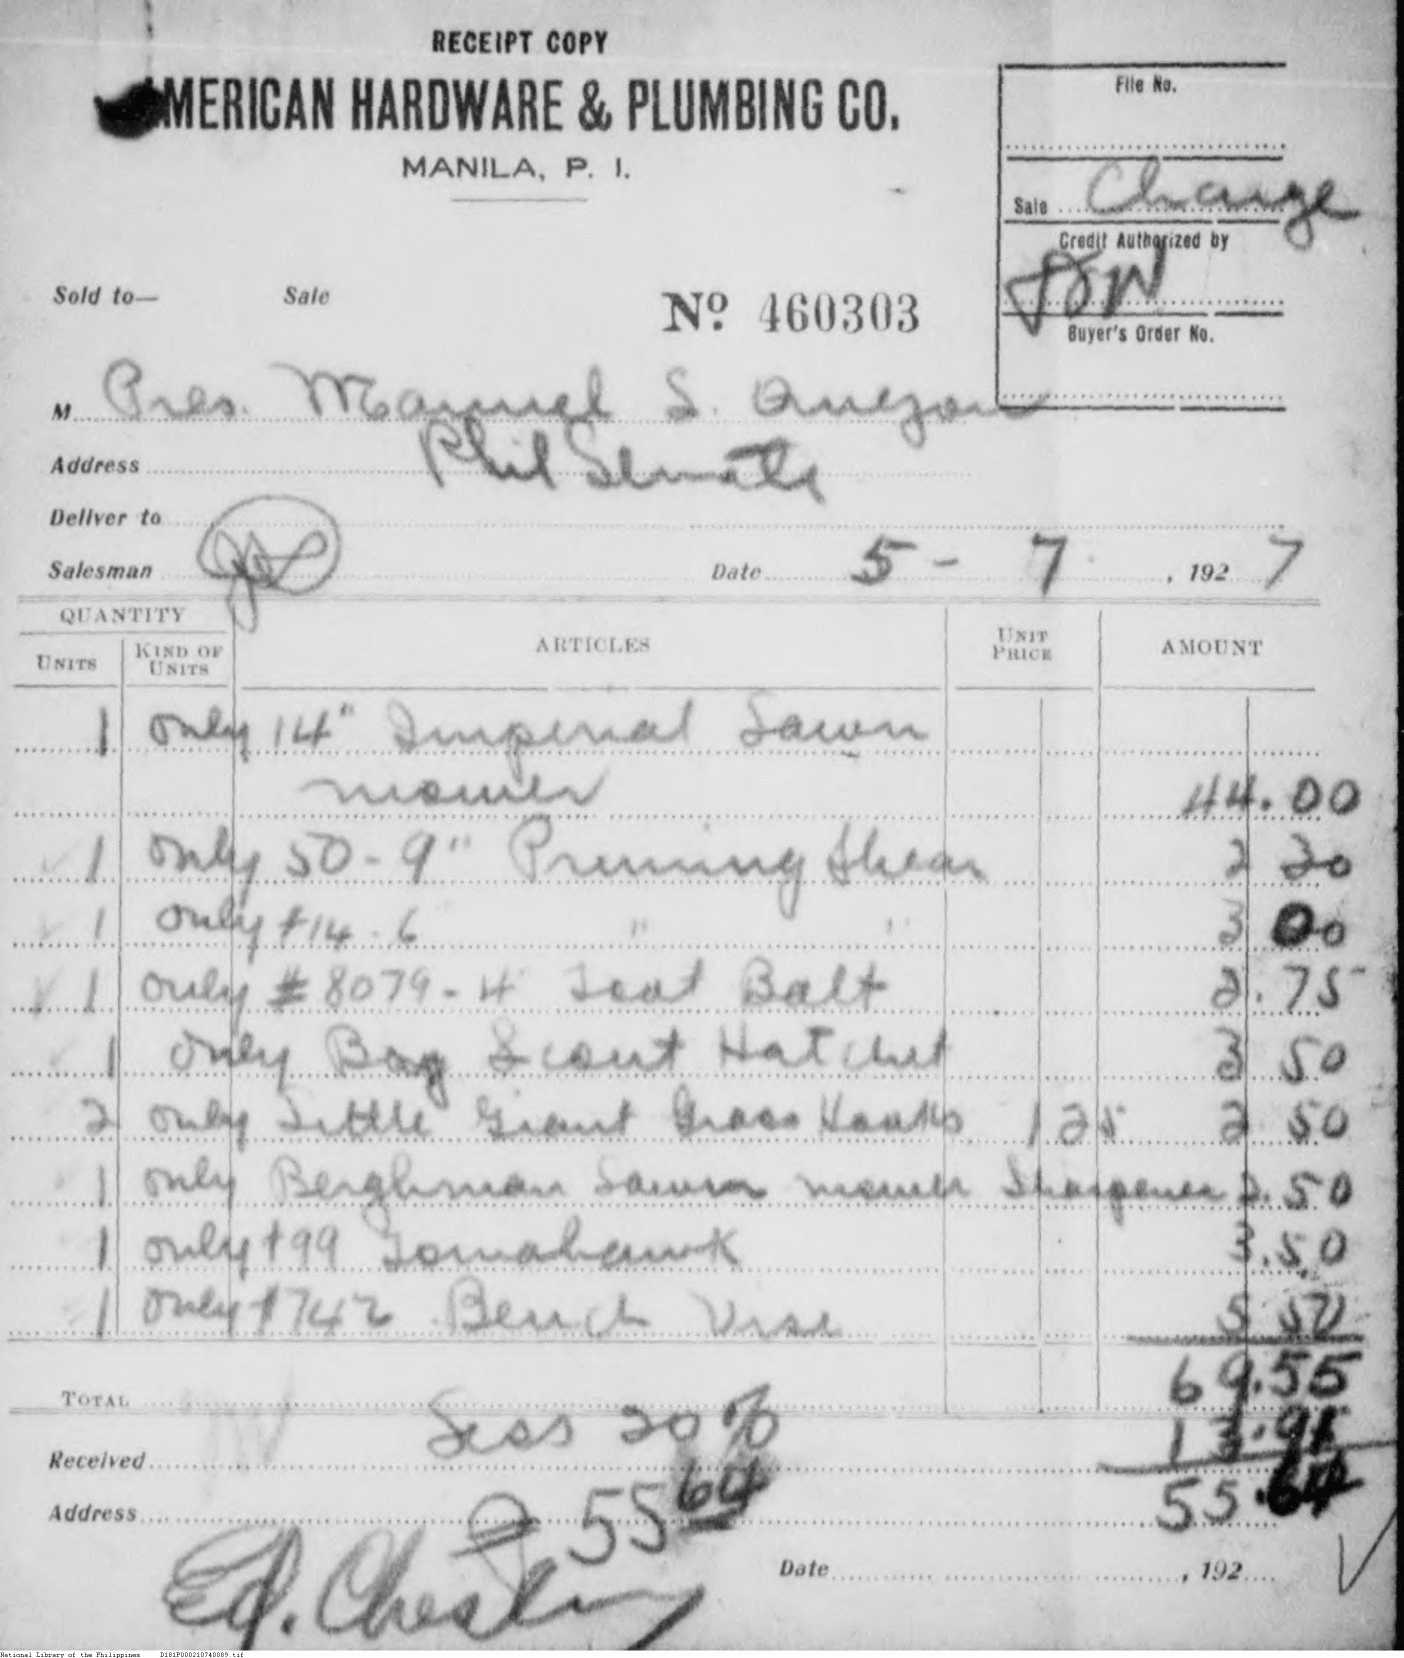 RECEIPT COPY
AMERICAN HARDWARE & PLUMBING CO.
MANILA, P. I.
File No.
Sale Charge
Credit Authorized by
Buyer's Order No.
Sold to— Sale No. 460303
M Pres. Manuel S. Quezon
Address Phil Senate
Deliver to
Salesman Date 5 - 7, 1927
QUANTITY
UNITS KIND OF UNITS ARTICLES UNIT PRICE AMOUNT
1 only 14" Imperial Lawn
mower 44.00
1 only 50-9" Pruning Shear 2 30
1 only #14-6 " " 3 00
1 only #8079-4 Bolt 2.75
1 only Boy Scout Hatchet 3 50
2 only Little Giant Grass Hooks 1 25 2 50
1 only Berghman Lawn mower Sharpener 2.50
1 only #99 Tomahawk 3.50
1 only #742 Bench Vise 5 50
TOTAL 69.55
Less 20% 13.91
Received
55.64
Address ₱ 55 64
Ed. Date , 192
National Library of the Philippines D181P000210740009.tif